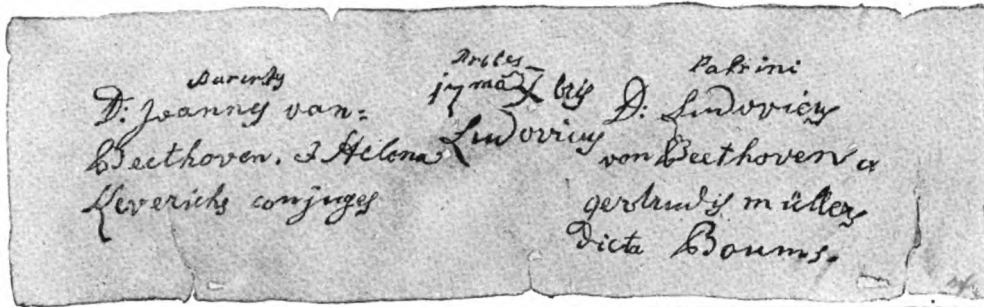 Parentes
D: Joannes van=
Beethoven. & Helena
Keverichs conjuges
Proles
17ma Xbris
Ludovicus
Patrini
D: Ludovicus
van Beethoven &
gertrudis müllers
dicta Baums.